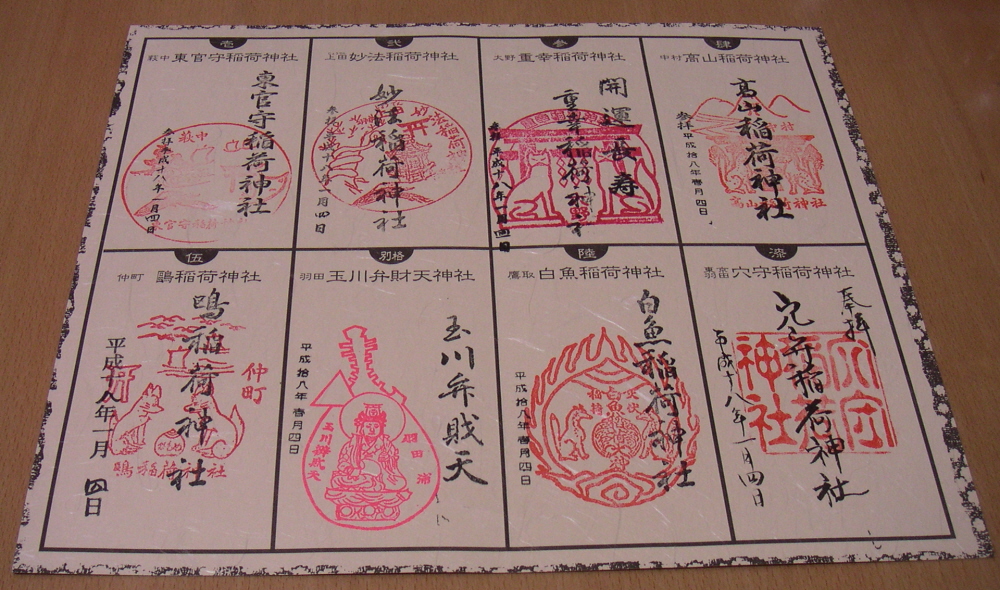 壱
萩中 東官守稲荷神社
東官守稲荷神社
参拝 平成十八年一月四日
萩中
弐
妙法稲荷神社
妙法稲荷神社
参
大野 重幸稲荷神社
開運長寿
重幸稲荷神社
平成十八年一月四日
肆
中村 高山稲荷神社
高山稲荷神社
参拝 平成拾八年春月四日
中村
高山稲荷神社
伍
仲町 鷗稲荷神社
鷗稲荷神社
仲町
平成十八年一月四日
鷗稲荷神社
別格
羽田 玉川弁財天神社
玉川弁財天
平成拾八年春月四日
玉川辨財天
陸
鷹取 白魚稲荷神社
白魚稲荷神社
平成拾八年春月四日
漆
穴守稲荷神社
奉拝
穴守稲荷神社
平成十八年一月四日
穴守稲荷神社